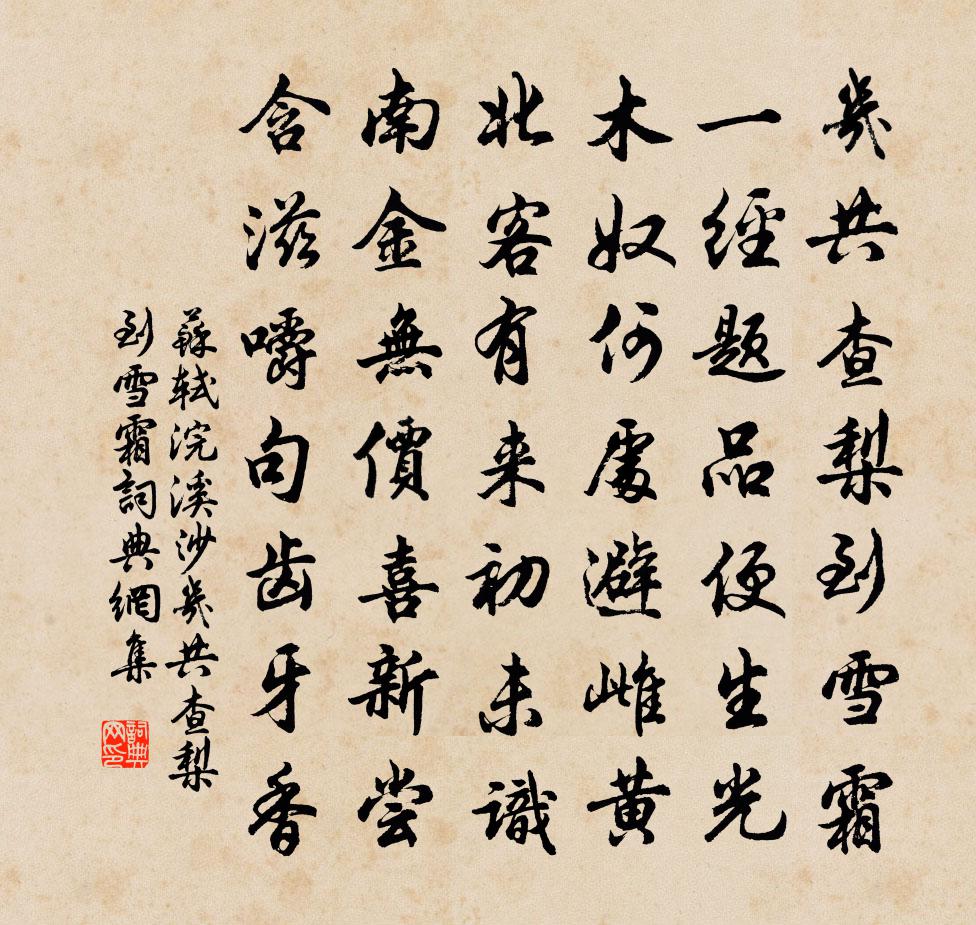 幾共查梨到雪霜
一經題品便生光
木奴何處避雌黄
北客有来初未識
南金無價喜新尝
含滋嚼句齿牙香
蘇轼浣溪沙幾共查梨
到雪霜詞典網集
詞典
网印